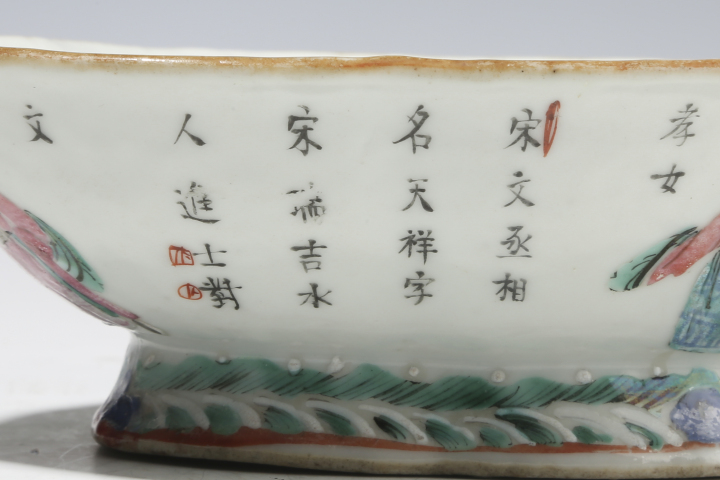 孝女
宋文丞相
名天祥字
宋瑞吉水
人進士對
文